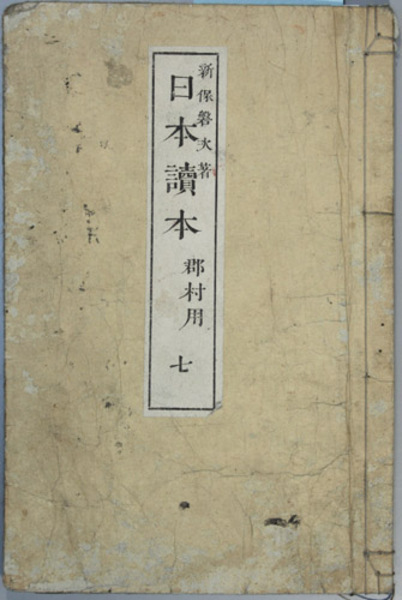 新保磐次著
日本讀本 郡村用 七